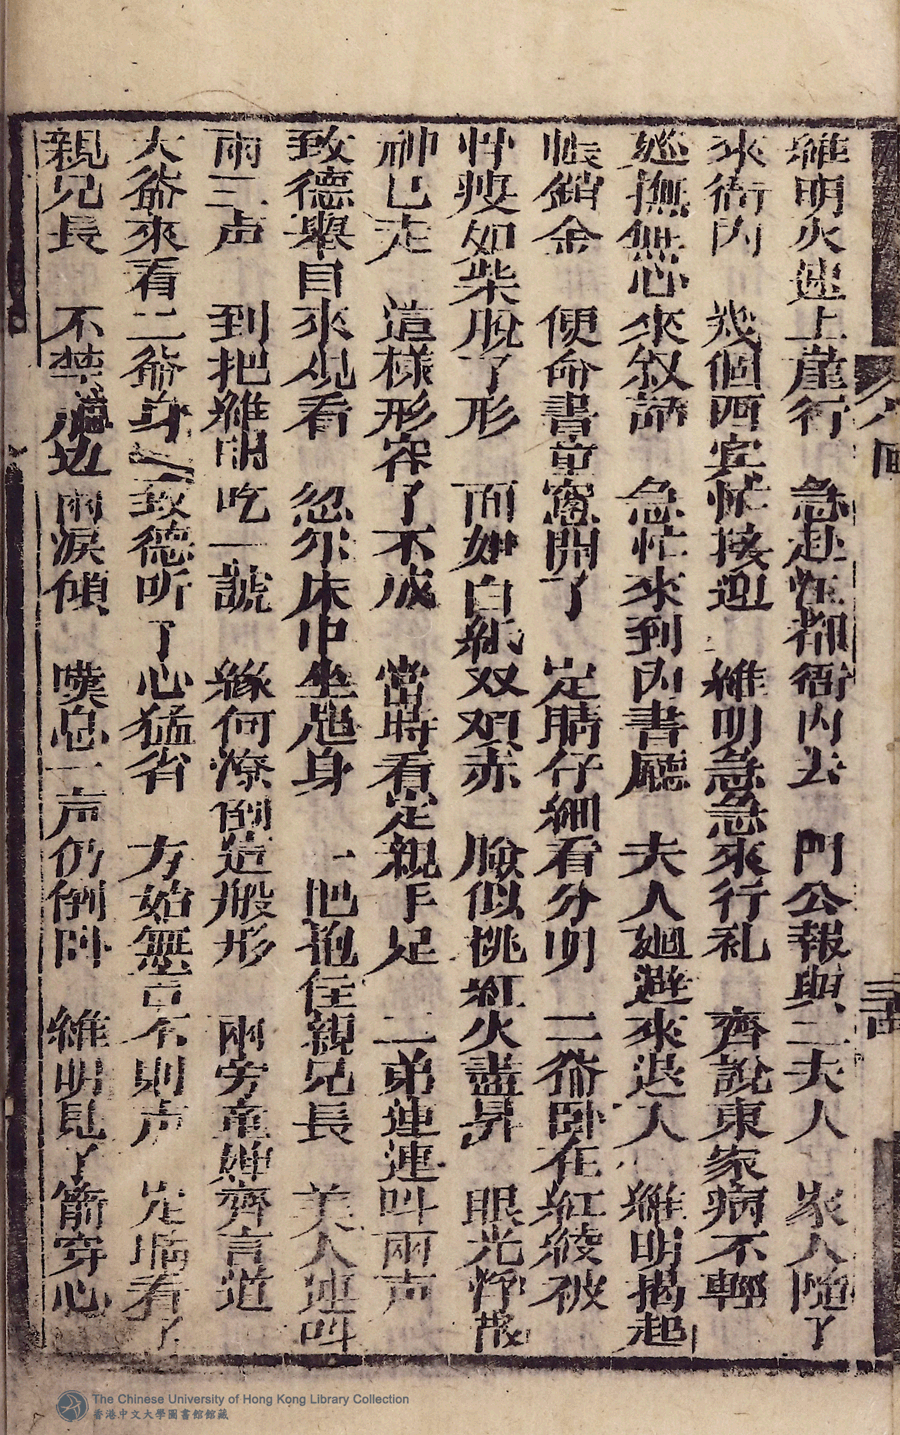 維明火速上崖行　急赴性都衙內去　門公報與二夫人　家人隨了
來衙內　幾個西賓忙接迎　維明急急來行礼　齊說東家病不輕
廵撫無心來叙話　急忙來到內書廳　夫人廻避來退入　維明揭起
帳銷金　便命書童窓開了　定睛仔細看分明　二爺卧在紅綾被
骨瘦如柴脫了形　面如白紙双頰赤　臉似桃紅火盡昇　眼光浮散
神已走　這樣形容了不成　當時看定親手足　二弟連連叫兩声
致德舉目來观看　忽尔床中坐起身　一把抱住親兄長　美人連叫
兩三声　到把維明吃一諕　緣何潦倒這般形　兩旁童婢齊言道
大爺來看二爺身　致德听了心猛省　方始無言不則声　定睛看了
親兄長　不禁腮边兩淚傾　嘆息一声仍倒卧　維明見了箭穿心
回
The Chinese University of Hong Kong Library Collection
香港中文大學圖書館館藏